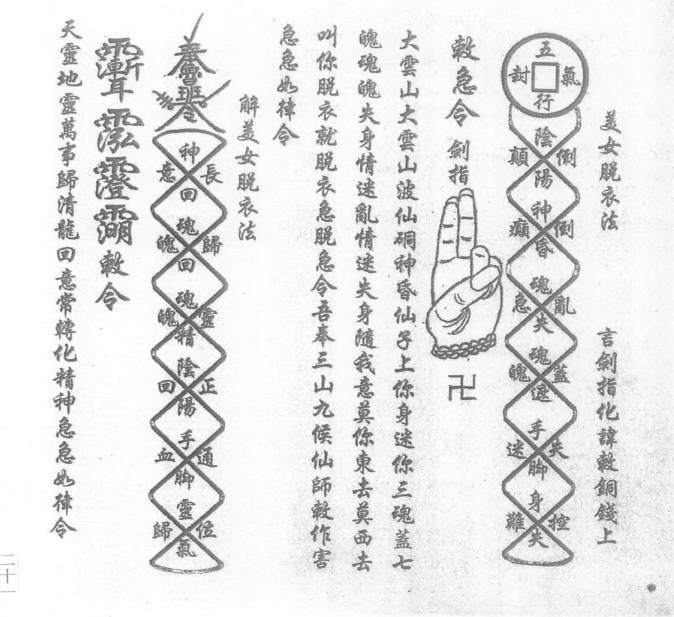 美女脫衣法
言劍指化諱敕銅錢上
五氣行封
陰倒陽顛
神倒昏癲
魂亂失急
魂蓋遮魄
手失腳迷
身控失難
敕急令
劍指
卍
大雲山大雲山波仙硐神昏仙子上你身迷你三魂蓋七
魄魂魄失身情迷亂情迷失身隨我意莫你東去莫西去
叫你脫衣就脫衣急脫急令吾奉三山九候仙師敕作害
急急如律令
解美女脫衣法
奉魯班令
神長回意
魂歸回魄
魂靈精魄
陰正陽回
手通腳血
靈位氣歸
敕令
天靈地靈萬事歸清龍回意常轉化精神急急如律令
二十一